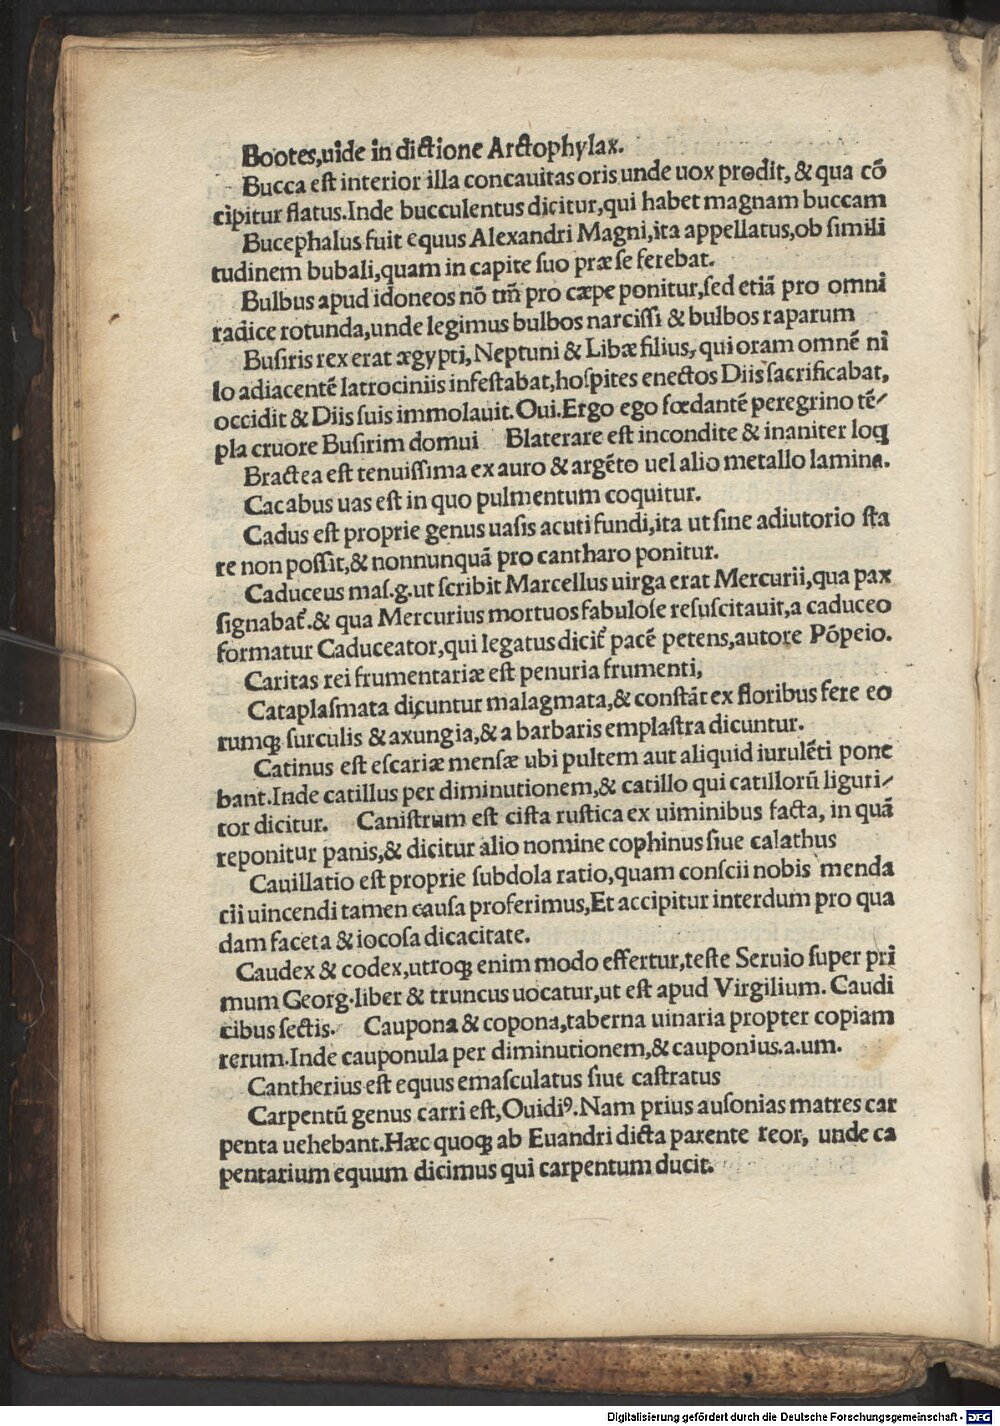 Bootes,uide in dictione Arctophylax.
Bucca est interior illa concauitas oris unde uox prodit, & qua cõ
cipitur flatus.Inde bucculentus dicitur,qui habet magnam buccam
Bucephalus fuit equus Alexandri Magni,ita appellatus,ob simili
tudinem bubali,quam in capite suo præ se ferebat.
Bulbus apud idoneos nõ tm̃ pro cæpe ponitur,sed etiã pro omni
radice rotunda,unde legimus bulbos narcissi & bulbos raparum
Busiris rex erat ægypti, Neptuni & Libæ filius, qui oram omnẽ ni
lo adiacentẽ latrociniis infestabat,hospites enectos Diis sacrificabat,
occidit & Diis suis immolauit.Oui.Ergo ego fœdantẽ peregrino tẽ/
pla cruore Busirim domui Blaterare est incondite & inaniter loq
Bractea est tenuissima ex auro & argẽto uel alio metallo lamina.
Cacabus uas est in quo pulmentum coquitur.
Cadus est proprie genus uasis acuti fundi,ita ut sine adiutorio sta
re non possit,& nonnunquã pro cantharo ponitur.
Caduceus mas.g.ut scribit Marcellus uirga erat Mercurii,qua pax
signabat᷑.& qua Mercurius mortuos fabulose resuscitauit,a caduceo
formatur Caduceator,qui legatus dicit᷑ pacẽ petens,autore Põpeio.
Caritas rei frumentariæ est penuria frumenti,
Cataplasmata dicuntur malagmata,& constãt ex floribus fere eo
rumqꝫ surculis & axungia,& a barbaris emplastra dicuntur.
Catinus est escariæ mensæ ubi pultem aut aliquid iurulẽti pone
bant.Inde catillus per diminutionem,& catillo qui catillorũ liguri/
tor dicitur. Canistrum est cista rustica ex uiminibus facta, in quã
reponitur panis,& dicitur alio nomine cophinus siue calathus
Cauillatio est proprie subdola ratio,quam conscii nobis menda
cii uincendi tamen causa proferimus,Et accipitur interdum pro qua
dam faceta & iocosa dicacitate.
Caudex & codex,utroqꝫ enim modo effertur,teste Seruio super pri
mum Georg.liber & truncus uocatur,ut est apud Virgilium. Caudi
cibus sectis. Caupona & copona,taberna uinaria propter copiam
rerum.Inde cauponula per diminutionem,& cauponius.a.um.
Cantherius est equus emasculatus siue castratus
Carpentũ genus carri est,Ouidiꝰ.Nam prius ausonias matres car
penta uehebant.Hæc quoqꝫ ab Euandri dicta parente reor, unde ca
pentarium equum dicimus qui carpentum ducit.
Digitalisierung gefördert durch die Deutsche Forschungsgemeinschaft - DFG